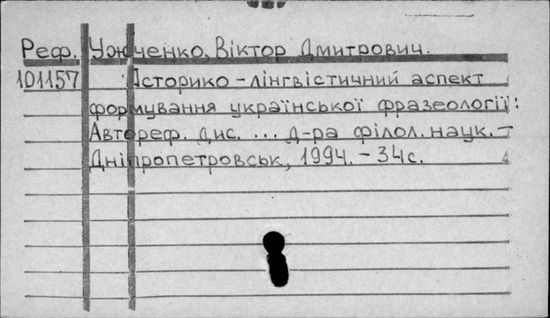 Реф. Ужченко, Віктор Дмитрович.
101157 Історико-лінгвістичний аспект
формування української фразеології:
Автореф. дис. ... д-ра філол. наук. -
Дніпропетровськ, 1994. - 34с.